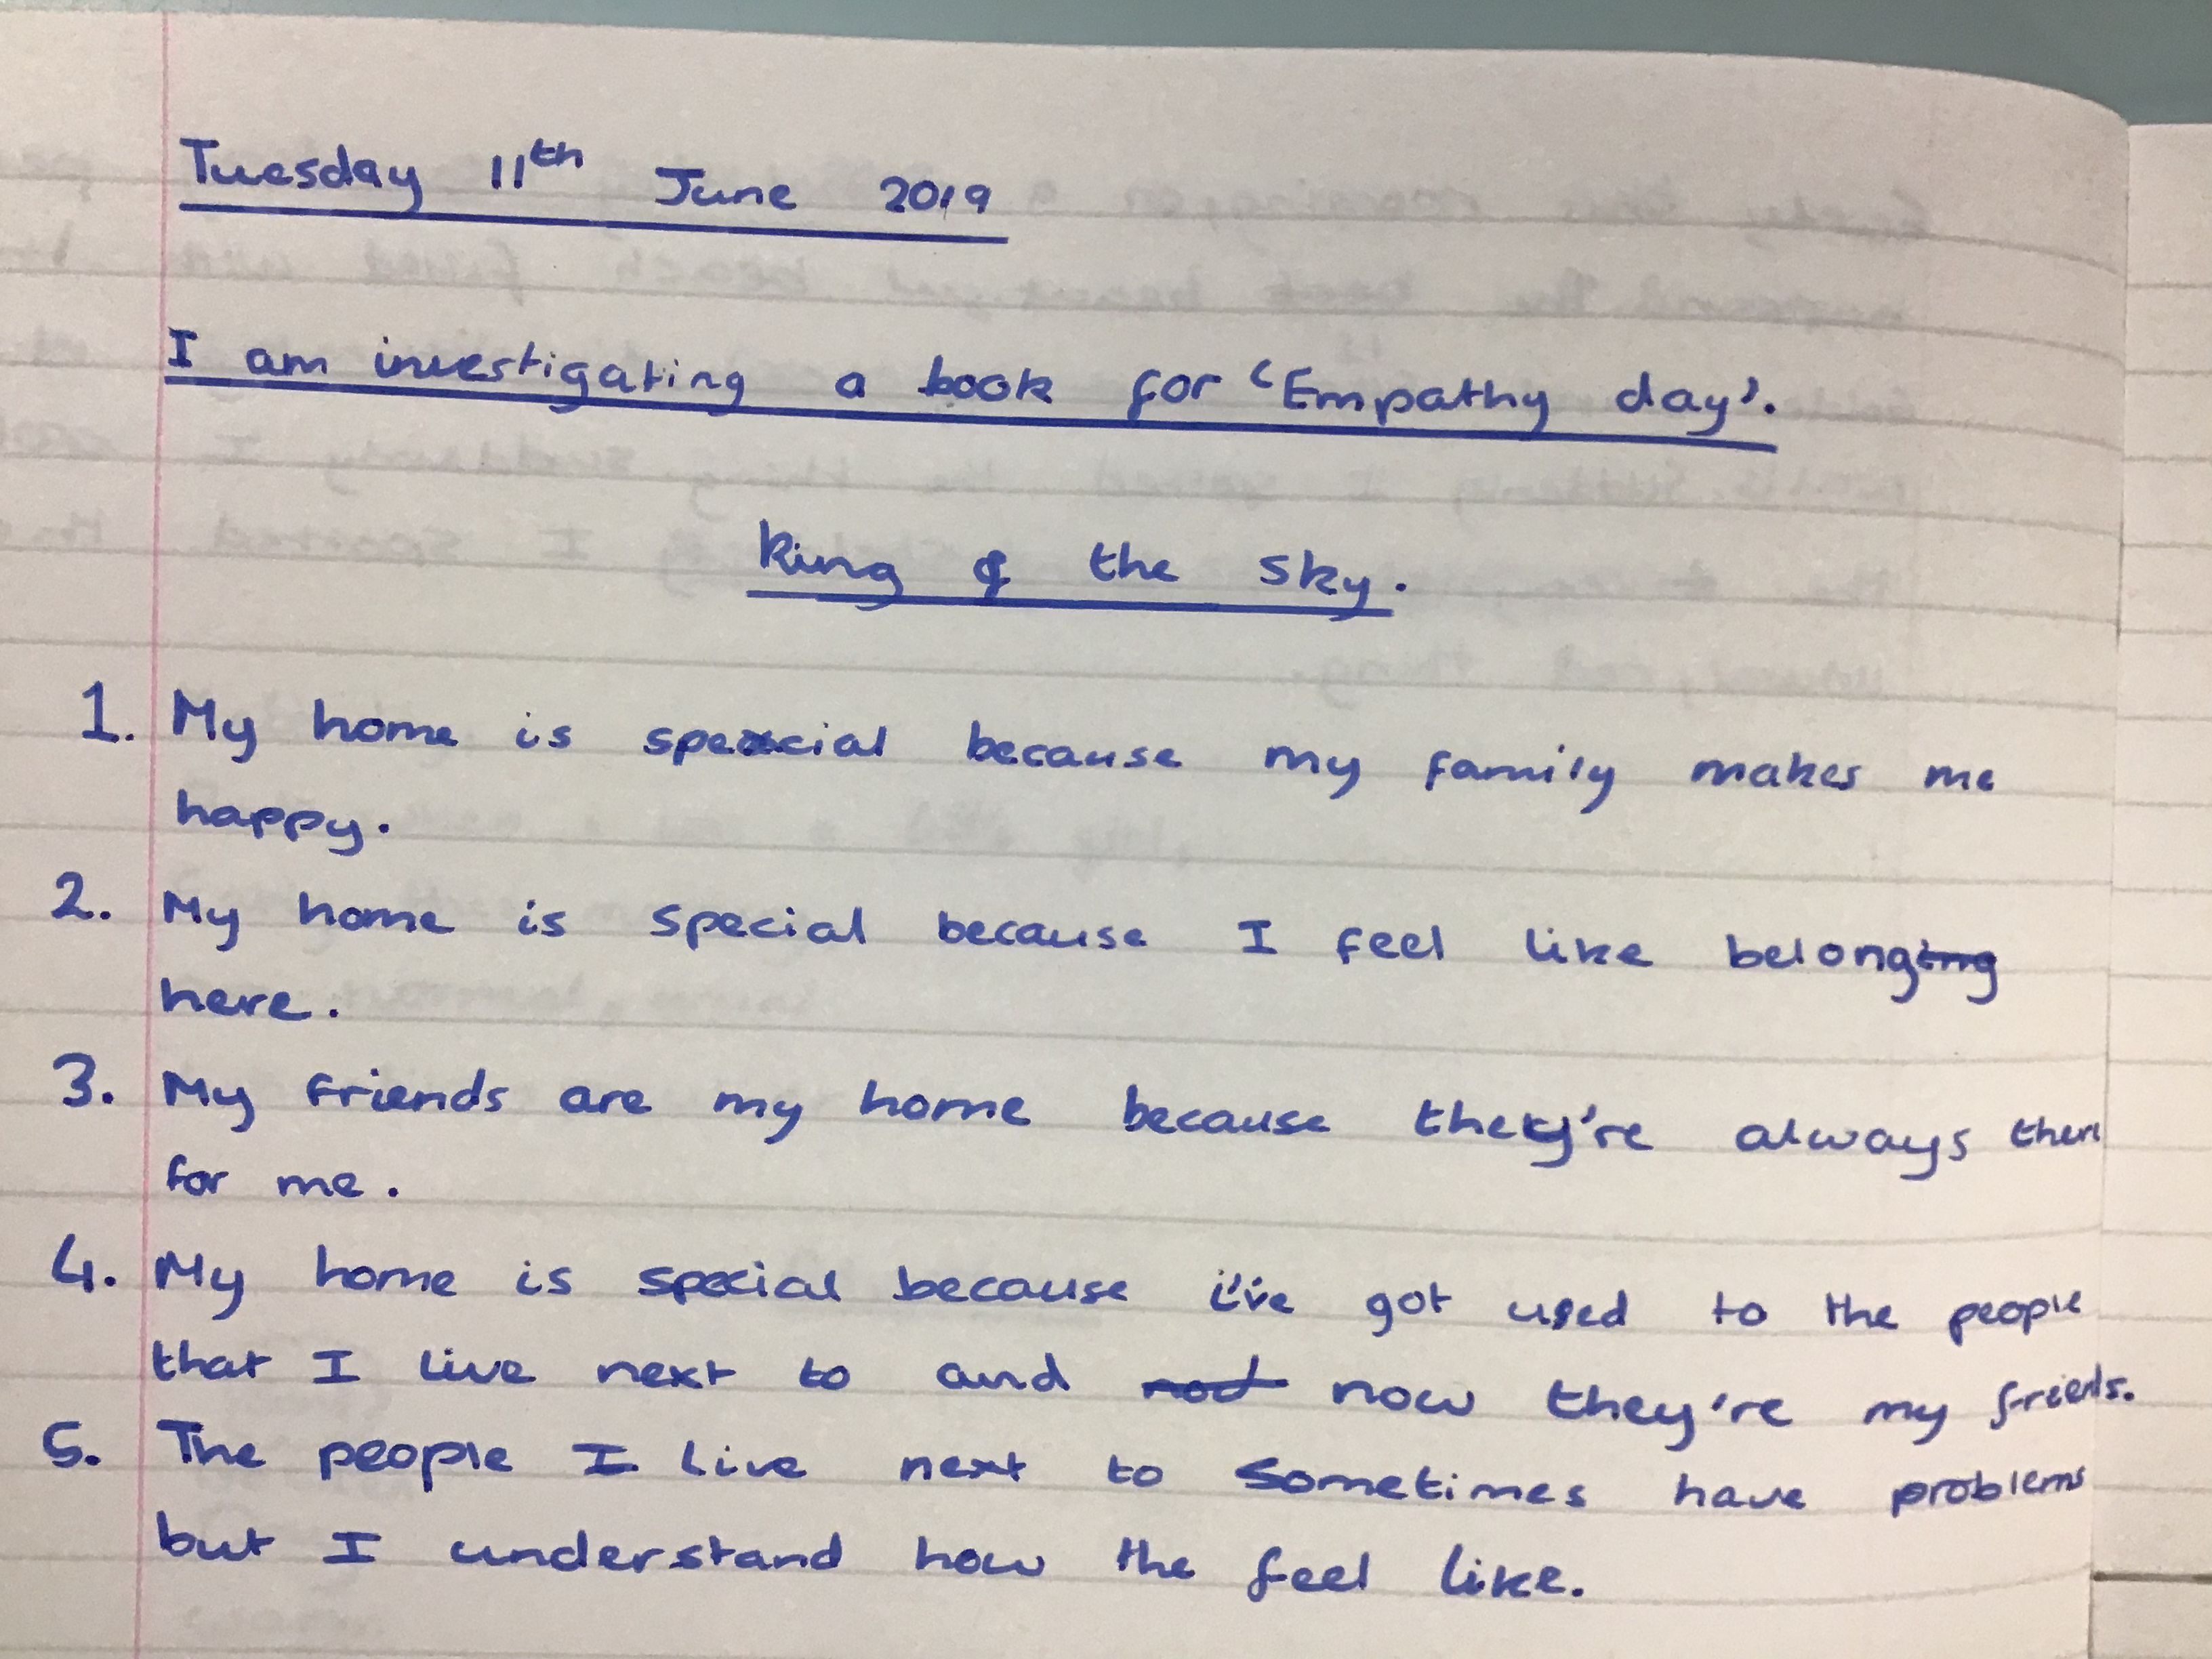 Tuesday 11th June 2019
I am investigating a book for 'Empathy day'.
King of the sky.
1. My home is special because my family makes me
happy.
2. My home is special because I feel like belong
here.
3. My friends are my home because they're always there
for me.
4. My home is special because i've got used to the people
that I live next to and not now they're my friends.
5. The people I live next to sometimes have problems
but I understand how the feel like.